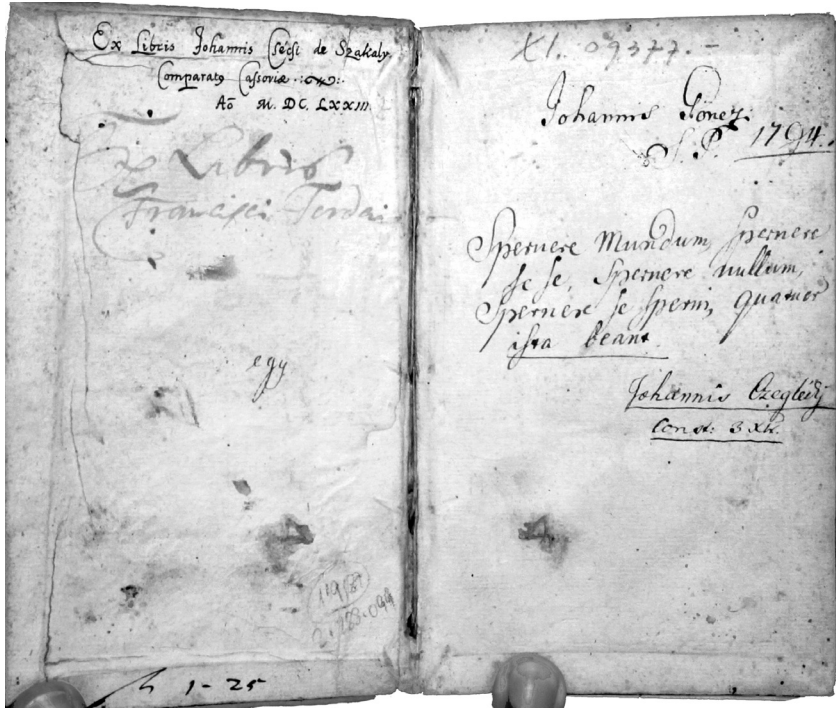 Ex Libris Johannis Csécsi de Szakaly.
Comparatꝰ Cassoviæ
Aō M. DC. LXXIII.
Ex Libris
Francisci Terdai
egy
1-25
XI. 09377.-
Johannis
S. P. 1794.
Spernere Mundum, spernere
se se, spernere nullum,
Spernere se sperni, quatuor
ista beant.
Johannis Czeglédj
Const: 3 xk.